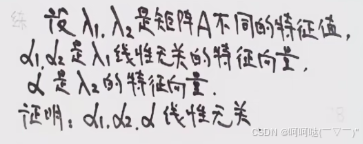 设 λ₁, λ₂ 是矩阵A不同的特征值,
α₁, α₂ 是 λ₁ 线性无关的特征向量,
α 是 λ₂ 的特征向量.
证明: α₁, α₂, α 线性无关
CSDN @呵呵哒(￣▽￣)"